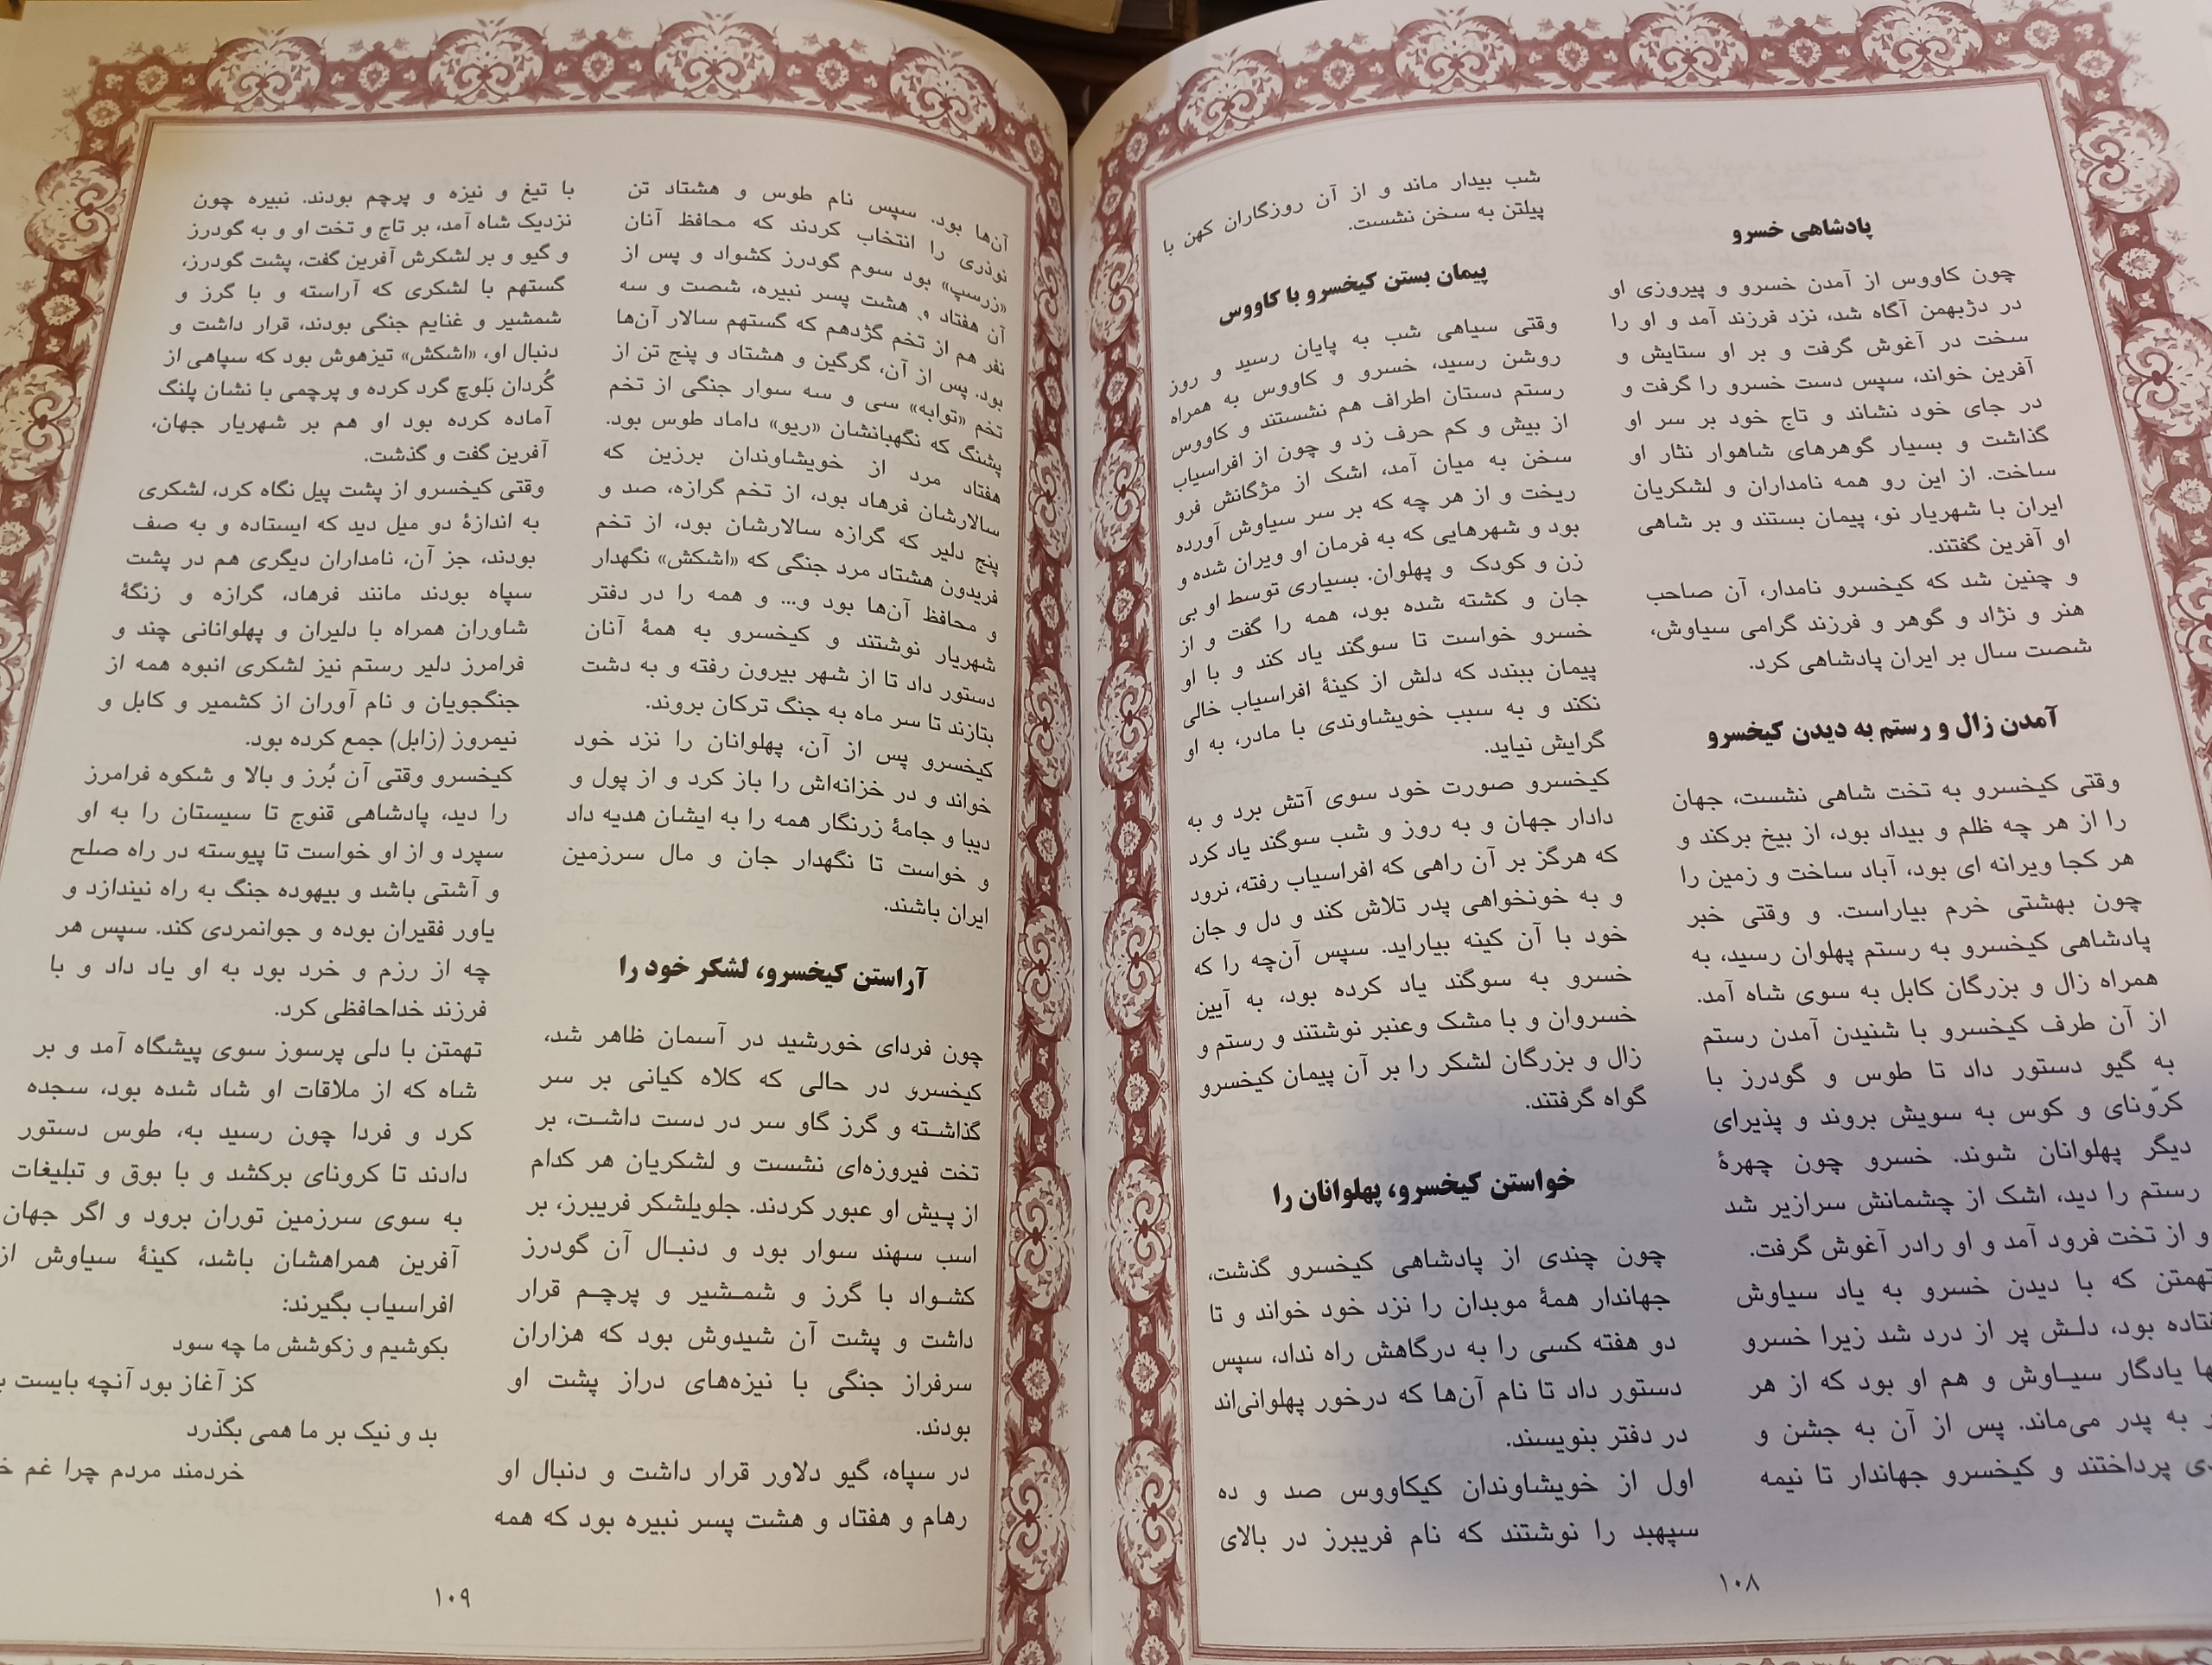 پادشاهی خسرو
چون کاووس از آمدن خسرو و پیروزی او
در دژبهمن آگاه شد، نزد فرزند آمد و او را
سخت در آغوش گرفت و بر او ستایش و
آفرین خواند، سپس دست خسرو را گرفت و
در جای خود نشاند و تاج خود بر سر او
گذاشت و بسیار گوهرهای شاهوار نثار او
ساخت. از این رو همه نامداران و لشکریان
ایران با شهریار نو، پیمان بستند و بر شاهی
او آفرین گفتند.
و چنین شد که کیخسرو نامدار، آن صاحب
هنر و نژاد و گوهر و فرزند گرامی سیاوش،
شصت سال بر ایران پادشاهی کرد.
آمدن زال و رستم به دیدن کیخسرو
وقتی کیخسرو به تخت شاهی نشست، جهان
را از هر چه ظلم و بیداد بود، از بیخ برکند و
هر کجا ویرانه ای بود، آباد ساخت و زمین را
چون بهشتی خرم بیاراست. و وقتی خبر
پادشاهی کیخسرو به رستم پهلوان رسید، به
همراه زال و بزرگان کابل به سوی شاه آمد.
از آن طرف کیخسرو با شنیدن آمدن رستم
به گیو دستور داد تا طوس و گودرز با
کرّونای و کوس به سویش بروند و پذیرای
دیگر پهلوانان شوند. خسرو چون چهرهٔ
رستم را دید، اشک از چشمانش سرازیر شد
و از تخت فرود آمد و او رادر آغوش گرفت.
تهمتن که با دیدن خسرو به یاد سیاوش
بود، دلش پر از درد شد زیرا خسرو
یادگار سیاوش و هم او بود که از هر
به پدر می‌ماند. پس از آن به جشن و
پرداختند و کیخسرو جهاندار تا نیمه
شب بیدار ماند و از آن روزگاران کهن با
پیلتن به سخن نشست.
پیمان بستن کیخسرو با کاووس
وقتی سیاهی شب به پایان رسید و روز
روشن رسید، خسرو و کاووس به همراه
رستم دستان اطراف هم نشستند و کاووس
از بیش و کم حرف زد و چون از افراسیاب
سخن به میان آمد، اشک از مژگانش فرو
ریخت و از هر چه که بر سر سیاوش آورده
بود و شهرهایی که به فرمان او ویران شده و
زن و کودک و پهلوان. بسیاری توسط او بی
جان و کشته شده بود، همه را گفت و از
خسرو خواست تا سوگند یاد کند و با او
پیمان ببندد که دلش از کینهٔ افراسیاب خالی
نکند و به سبب خویشاوندی با مادر، به او
گرایش نیاید.
کیخسرو صورت خود سوی آتش برد و به
دادار جهان و به روز و شب سوگند یاد کرد
که هرگز بر آن راهی که افراسیاب رفته، نرود
و به خونخواهی پدر تلاش کند و دل و جان
خود با آن کینه بیاراید. سپس آن‌چه را که
خسرو به سوگند یاد کرده بود، به آیین
خسروان و با مشک وعنبر نوشتند و رستم و
زال و بزرگان لشکر را بر آن پیمان کیخسرو
گواه گرفتند.
خواستن کیخسرو، پهلوانان را
چون چندی از پادشاهی کیخسرو گذشت،
جهاندار همهٔ موبدان را نزد خود خواند و تا
دو هفته کسی را به درگاهش راه نداد، سپس
دستور داد تا نام آن‌ها که درخور پهلوانی‌اند
در دفتر بنویسند.
اول از خویشاوندان کیکاووس صد و ده
سپهبد را نوشتند که نام فریبرز در بالای
۱۰۸
آن‌ها بود. سپس نام طوس و هشتاد تن
نوذری را انتخاب کردند که محافظ آنان
«زرسپ» بود سوم گودرز کشواد و پس از
آن هفتاد و هشت پسر نبیره، شصت و سه
نفر هم از تخم گژدهم که گستهم سالار آن‌ها
بود. پس از آن، گرگین و هشتاد و پنج تن از
تخم «توابه» سی و سه سوار جنگی از تخم
پشنگ که نگهبانشان «ریو» داماد طوس بود.
هفتاد مرد از خویشاوندان برزین که
سالارشان فرهاد بود، از تخم گرازه، صد و
پنج دلیر که گرازه سالارشان بود، از تخم
فریدون هشتاد مرد جنگی که «اشکش» نگهدار
و محافظ آن‌ها بود و... و همه را در دفتر
شهریار نوشتند و کیخسرو به همهٔ آنان
دستور داد تا از شهر بیرون رفته و به دشت
بتازند تا سر ماه به جنگ ترکان بروند.
کیخسرو پس از آن، پهلوانان را نزد خود
خواند و در خزانه‌اش را باز کرد و از پول و
دیبا و جامهٔ زرنگار همه را به ایشان هدیه داد
و خواست تا نگهدار جان و مال سرزمین
ایران باشند.
آراستن کیخسرو، لشکر خود را
چون فردای خورشید در آسمان ظاهر شد،
کیخسرو، در حالی که کلاه کیانی بر سر
گذاشته و گرز گاو سر در دست داشت، بر
تخت فیروزه‌ای نشست و لشکریان هر کدام
از پیش او عبور کردند. جلویلشکر فریبرز، بر
اسب سهند سوار بود و دنبال آن گودرز
کشواد با گرز و شمشیر و پرچم قرار
داشت و پشت آن شیدوش بود که هزاران
سرفراز جنگی با نیزه‌های دراز پشت او
بودند.
در سپاه، گیو دلاور قرار داشت و دنبال او
رهام و هفتاد و هشت پسر نبیره بود که همه
با تیغ و نیزه و پرچم بودند. نبیره چون
نزدیک شاه آمد، بر تاج و تخت او و به گودرز
و گیو و بر لشکرش آفرین گفت، پشت گودرز،
گستهم با لشکری که آراسته و با گرز و
شمشیر و غنایم جنگی بودند، قرار داشت و
دنبال او، «اشکش» تیزهوش بود که سپاهی از
گُردان بَلوچ گرد کرده و پرچمی با نشان پلنگ
آماده کرده بود او هم بر شهریار جهان،
آفرین گفت و گذشت.
وقتی کیخسرو از پشت پیل نگاه کرد، لشکری
به اندازهٔ دو میل دید که ایستاده و به صف
بودند، جز آن، نامداران دیگری هم در پشت
سپاه بودند مانند فرهاد، گرازه و زنگهٔ
شاوران همراه با دلیران و پهلوانانی چند و
فرامرز دلیر رستم نیز لشکری انبوه همه از
جنگجویان و نام آوران از کشمیر و کابل و
نیمروز (زابل) جمع کرده بود.
کیخسرو وقتی آن بُرز و بالا و شکوه فرامرز
را دید، پادشاهی قنوج تا سیستان را به او
سپرد و از او خواست تا پیوسته در راه صلح
و آشتی باشد و بیهوده جنگ به راه نیندازد و
یاور فقیران بوده و جوانمردی کند. سپس هر
چه از رزم و خرد بود به او یاد داد و با
فرزند خداحافظی کرد.
تهمتن با دلی پرسوز سوی پیشگاه آمد و بر
شاه که از ملاقات او شاد شده بود، سجده
کرد و فردا چون رسید به، طوس دستور
دادند تا کرونای برکشد و با بوق و تبلیغات
به سوی سرزمین توران برود و اگر جهان
آفرین همراهشان باشد، کینهٔ سیاوش از
افراسیاب بگیرند:
بکوشیم و زکوشش ما چه سود
کز آغاز بود آنچه بایست
بد و نیک بر ما همی بگذرد
خردمند مردم چرا غم
۱۰۹